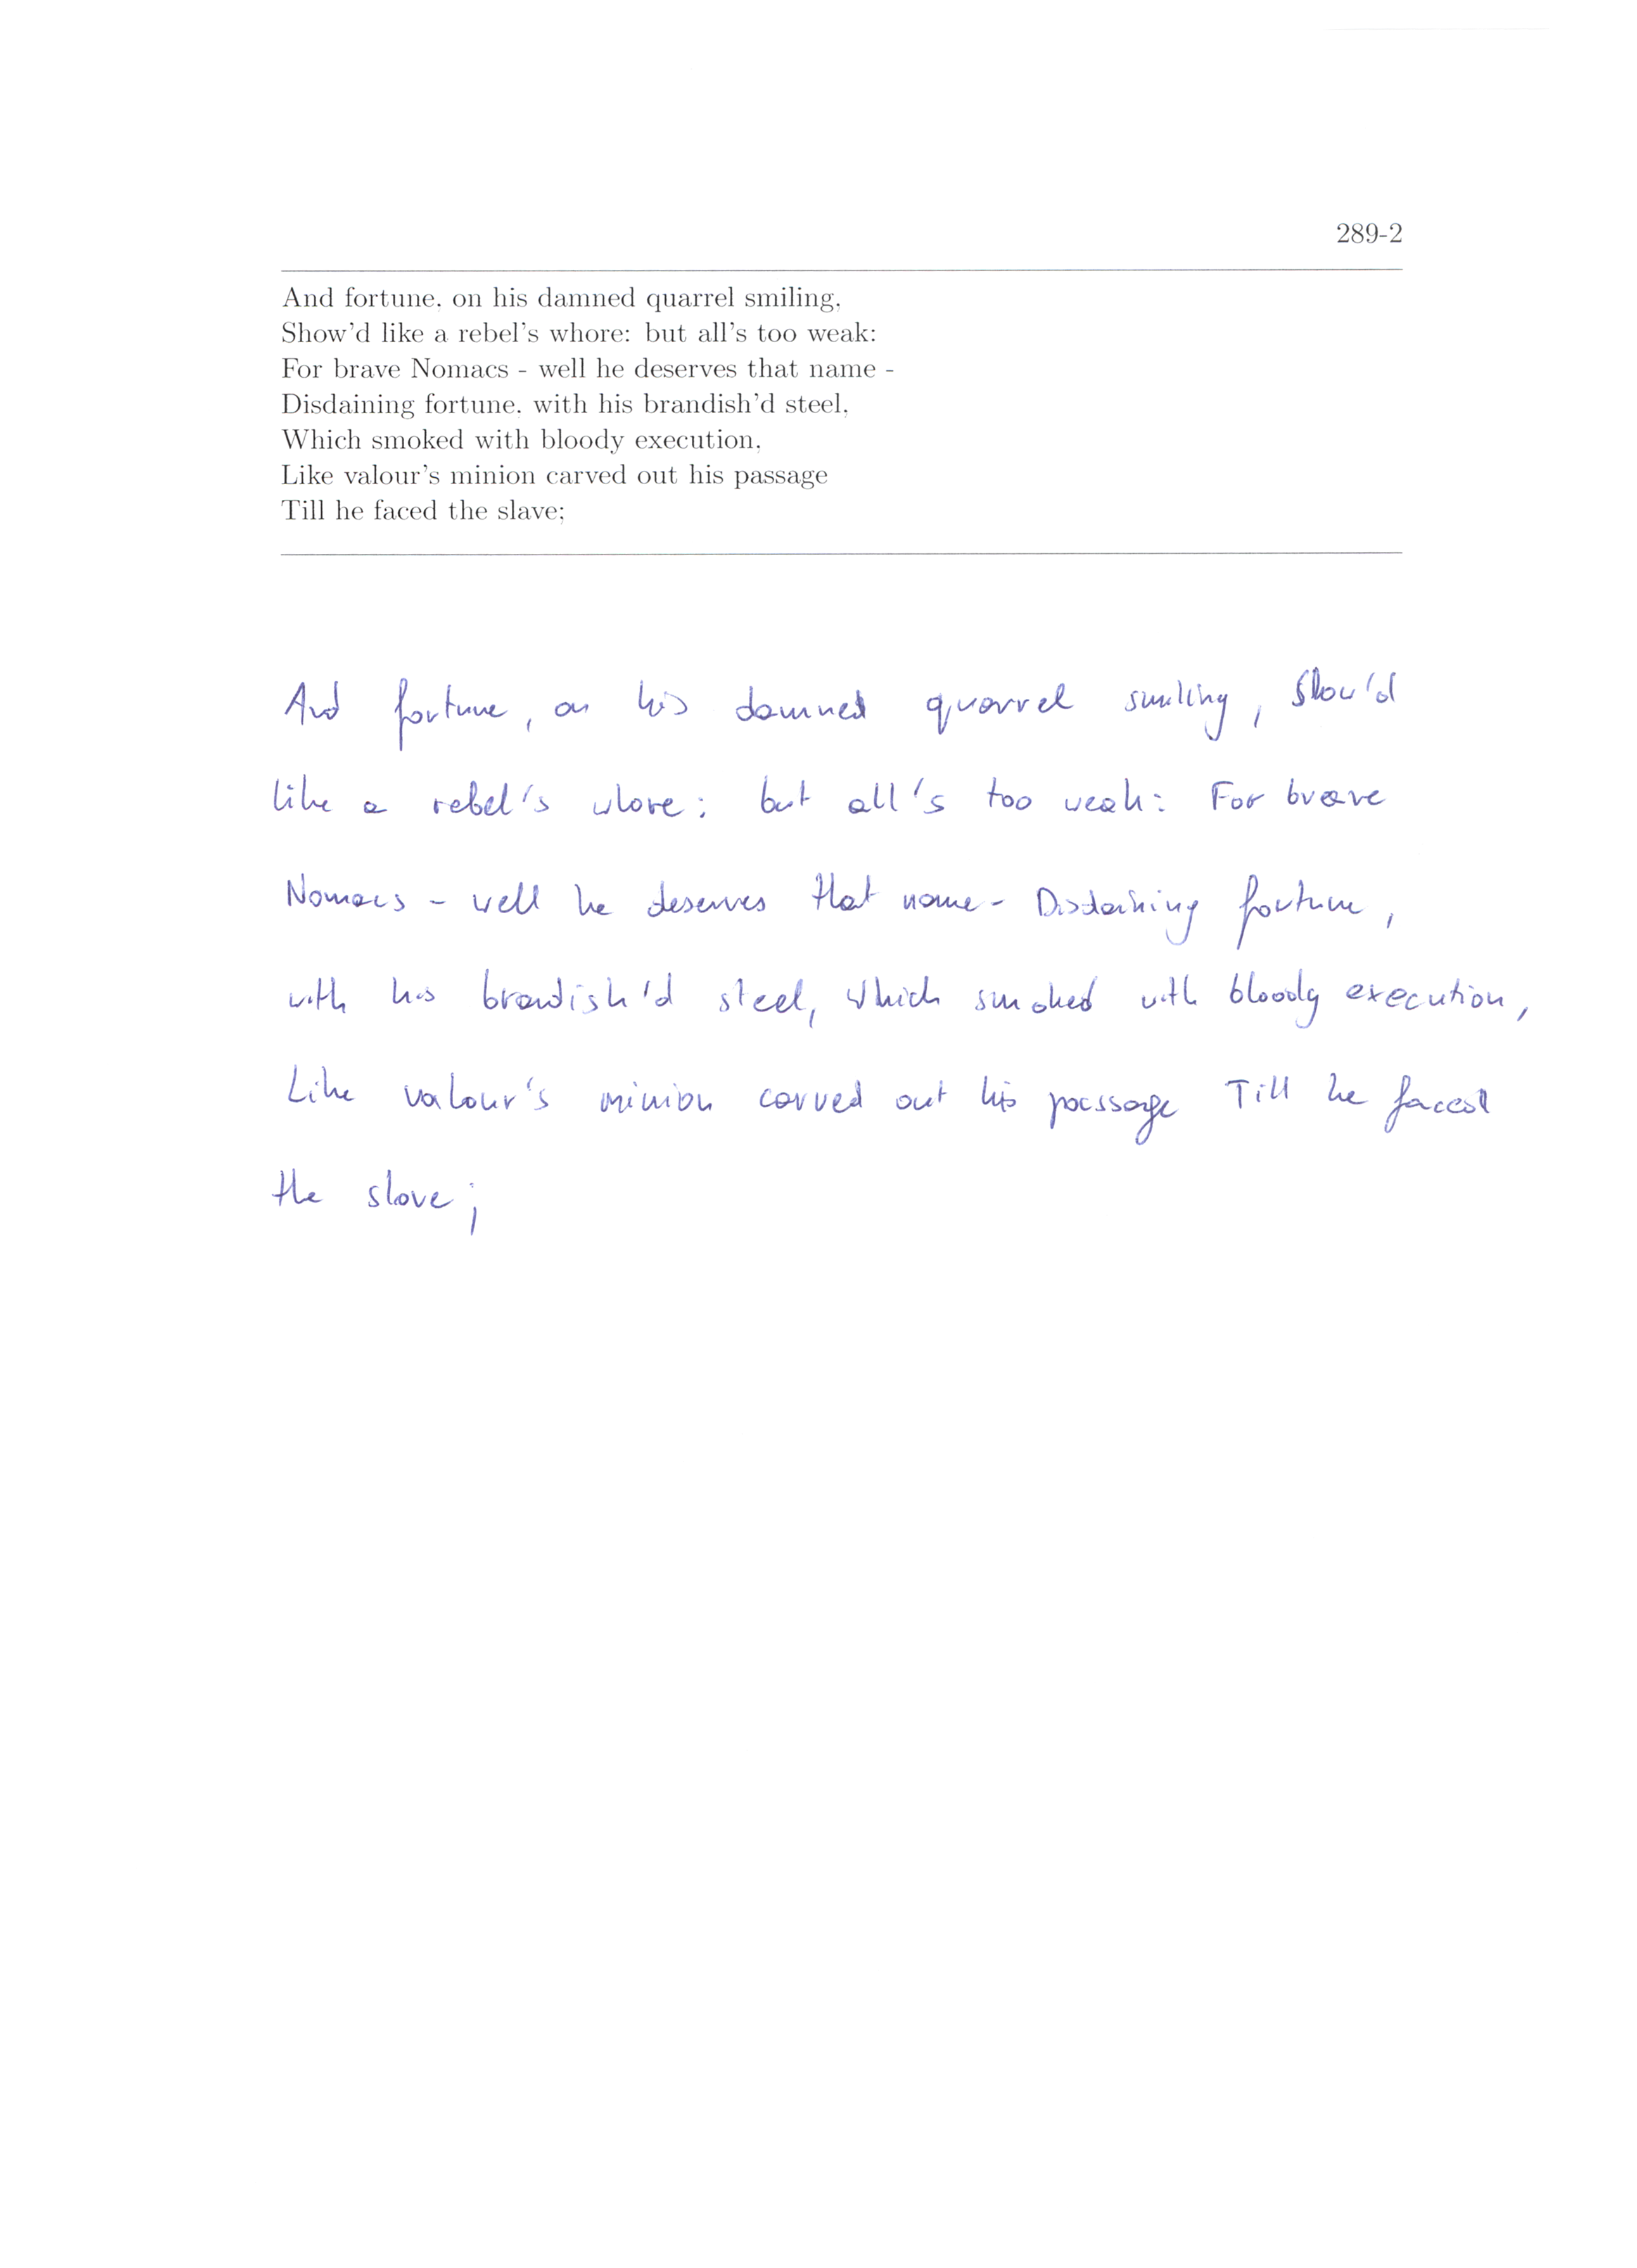 289-2
And fortune, on his damned quarrel smiling,
Show'd like a rebel's whore: but all's too weak:
For brave Nomacs - well he deserves that name -
Disdaining fortune, with his brandish'd steel,
Which smoked with bloody execution,
Like valour's minion carved out his passage
Till he faced the slave;
And fortune, on his damned quarrel smiling, Show'd
like a rebel's whore: but all's too weak: For brave
Nomacs - well he deserves that name - Disdaining fortune,
with his brandish'd steel, Which smoked with bloody execution,
Like valour's minion carved out his passage Till he faced
the slave;